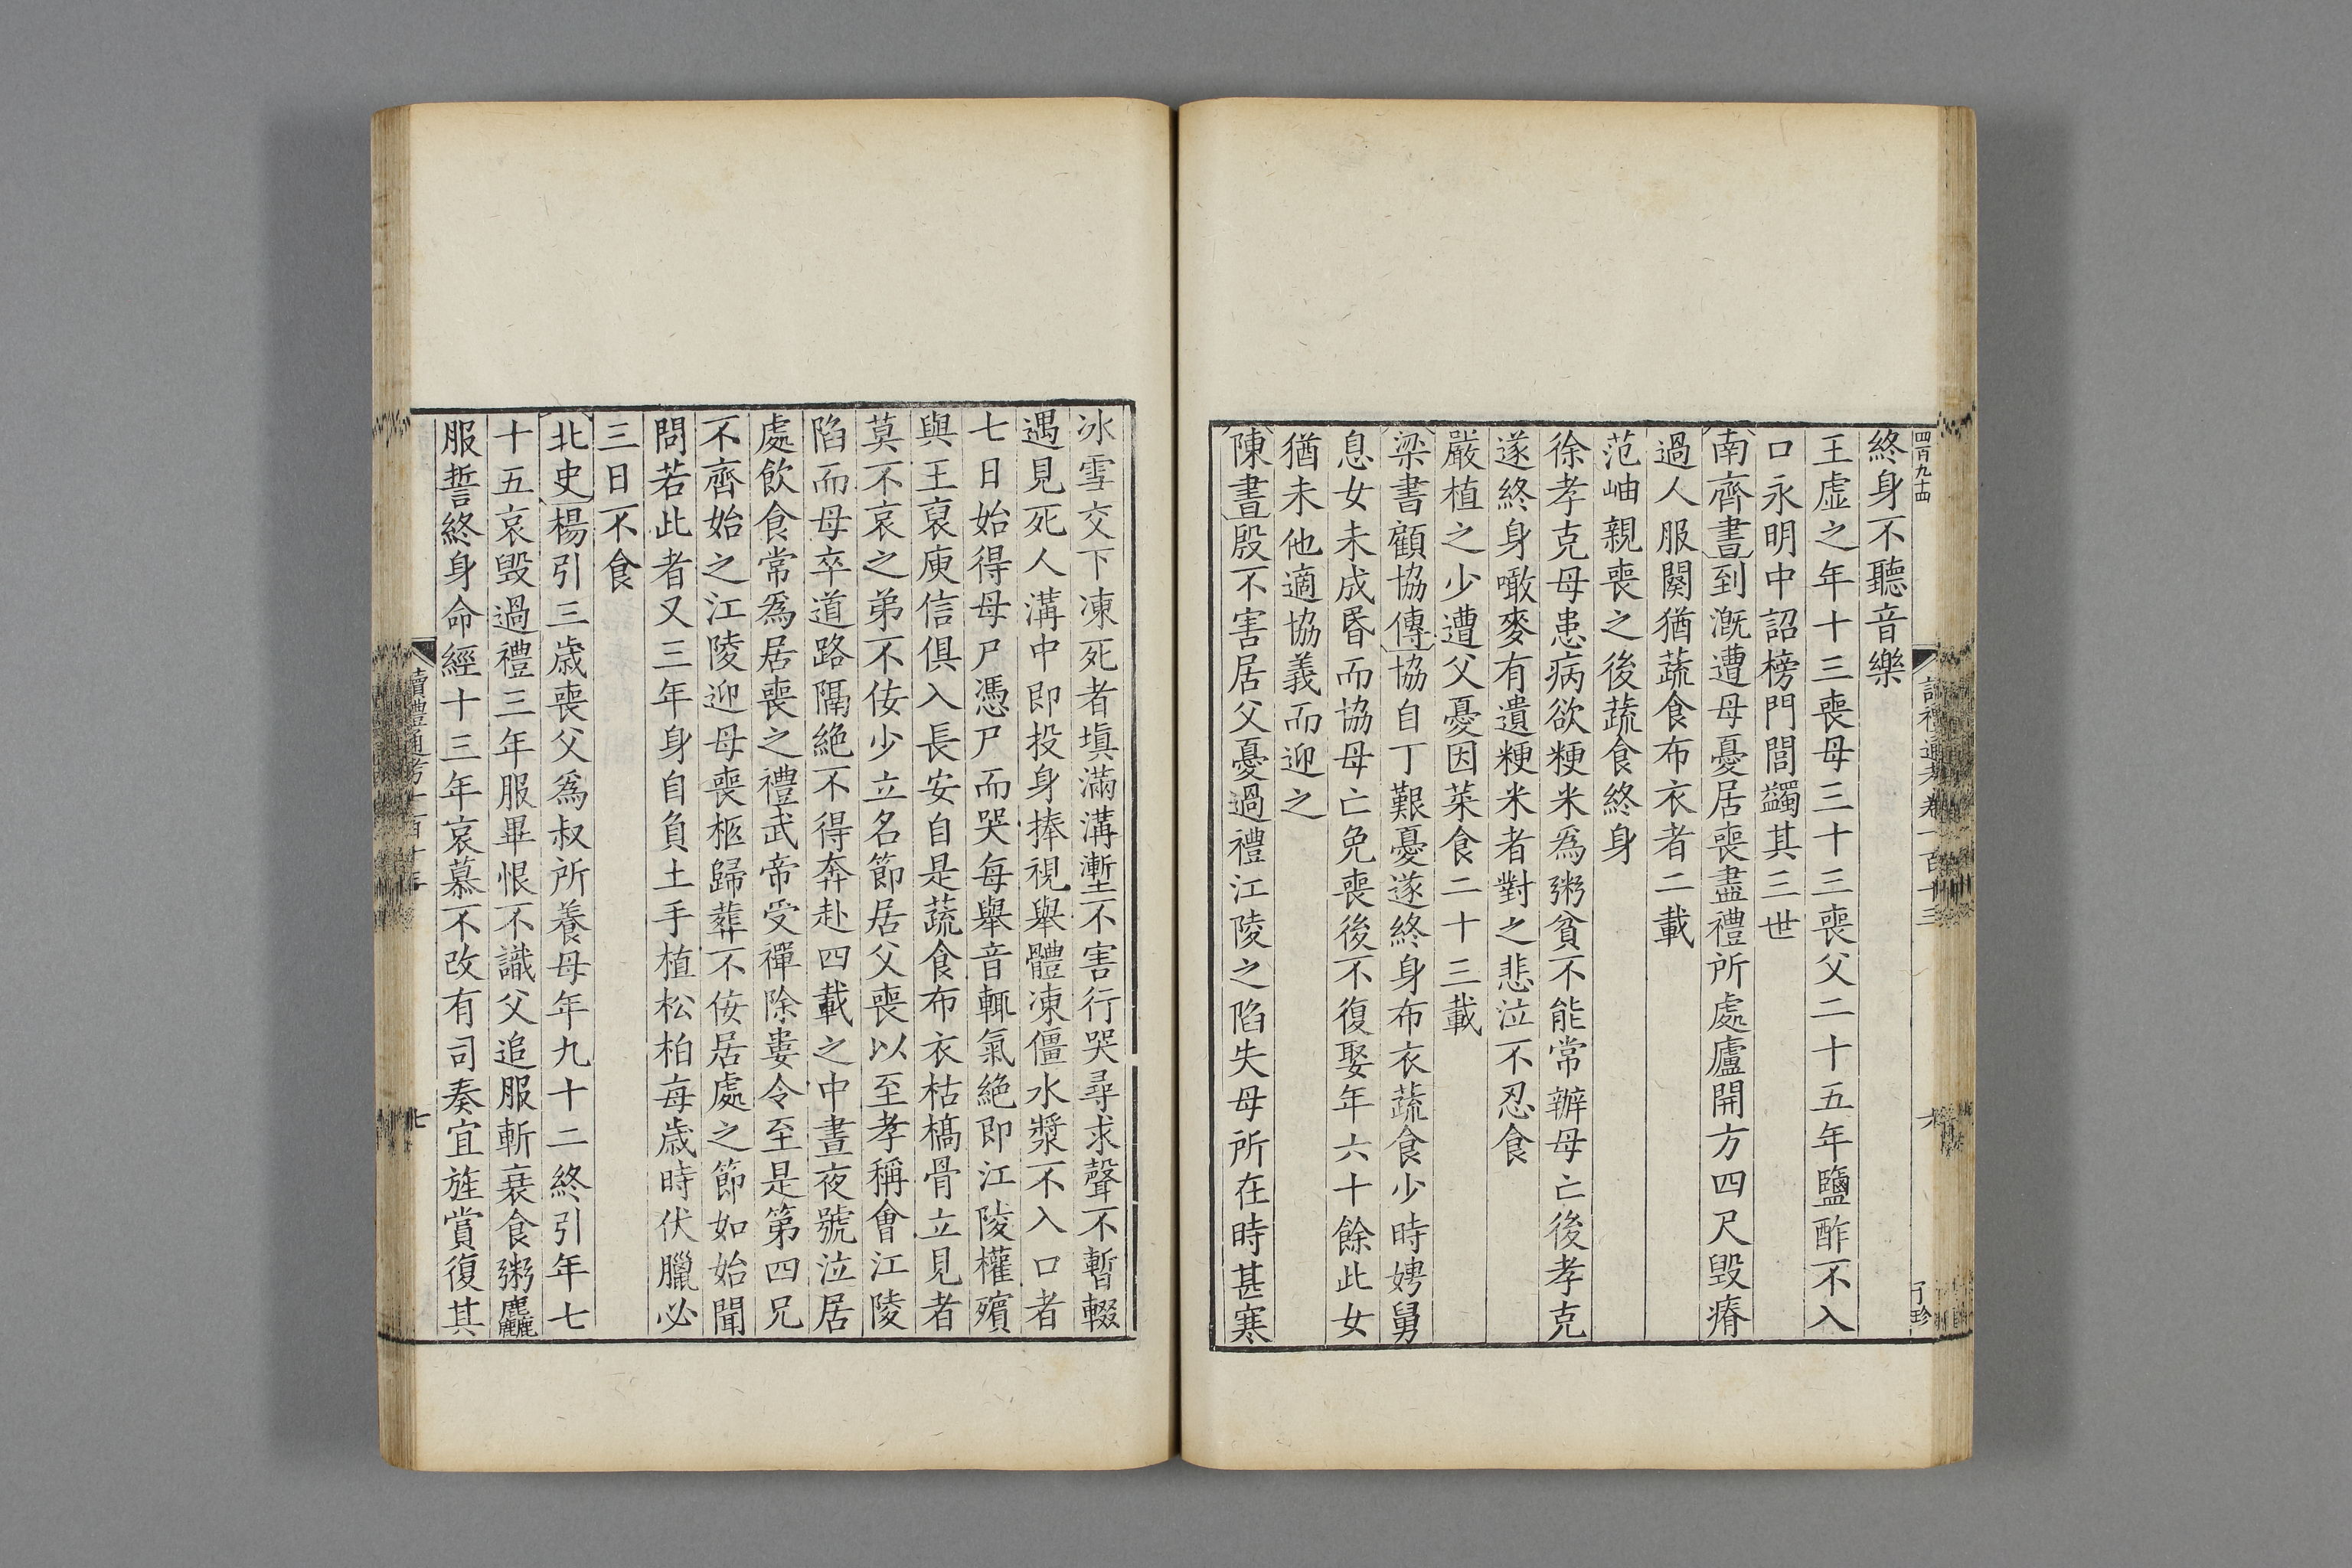 四百九十四
讀禮通考卷一百十三
六
終身不聽音樂
王虛之年十三喪母三十三喪父二十五年鹽酢不入
口永明中詔榜門閭蠲其三世
南齊書到溉遭母憂居喪盡禮所處廬開方四尺毀瘠
過人服闋猶蔬食布衣者二載
范岫親喪之後蔬食終身
徐孝克母患病欲粳米爲粥貧不能常辦母亡後孝克
遂終身噉麥有遺粳米者對之悲泣不忍食
嚴植之少遭父憂因菜食二十三載
梁書顧協傳協自丁艱憂遂終身布衣蔬食少時娉舅
息女未成昬而協母亡免喪後不復娶年六十餘此女
猶未他適協義而迎之
陳書殷不害居父憂過禮江陵之陷失母所在時甚寒
冰雪交下凍死者塡滿溝壍不害行哭尋求聲不暫輟
遇見死人溝中即投身捧視舉體凍僵水漿不入口者
七日始得母尸憑尸而哭每舉音輒氣絶即江陵權殯
與王裒庾信俱入長安自是蔬食布衣枯槁骨立見者
莫不哀之弟不佞少立名節居父喪以至孝稱會江陵
陷而母卒道路隔絶不得奔赴四載之中晝夜號泣居
處飲食常爲居喪之禮武帝受禪除婁令至是第四兄
不齊始之江陵迎母喪柩歸葬不佞居處之節如始聞
問若此者又三年身自負土手植松柏每歲時伏臘必
三日不食
北史楊引三歲喪父爲叔所養母年九十二終引年七
十五哀毀過禮三年服畢恨不識父追服斬衰食粥麤
服誓終身命經十三年哀慕不改有司奏宜旌賞復其
讀禮通考一百十三
七